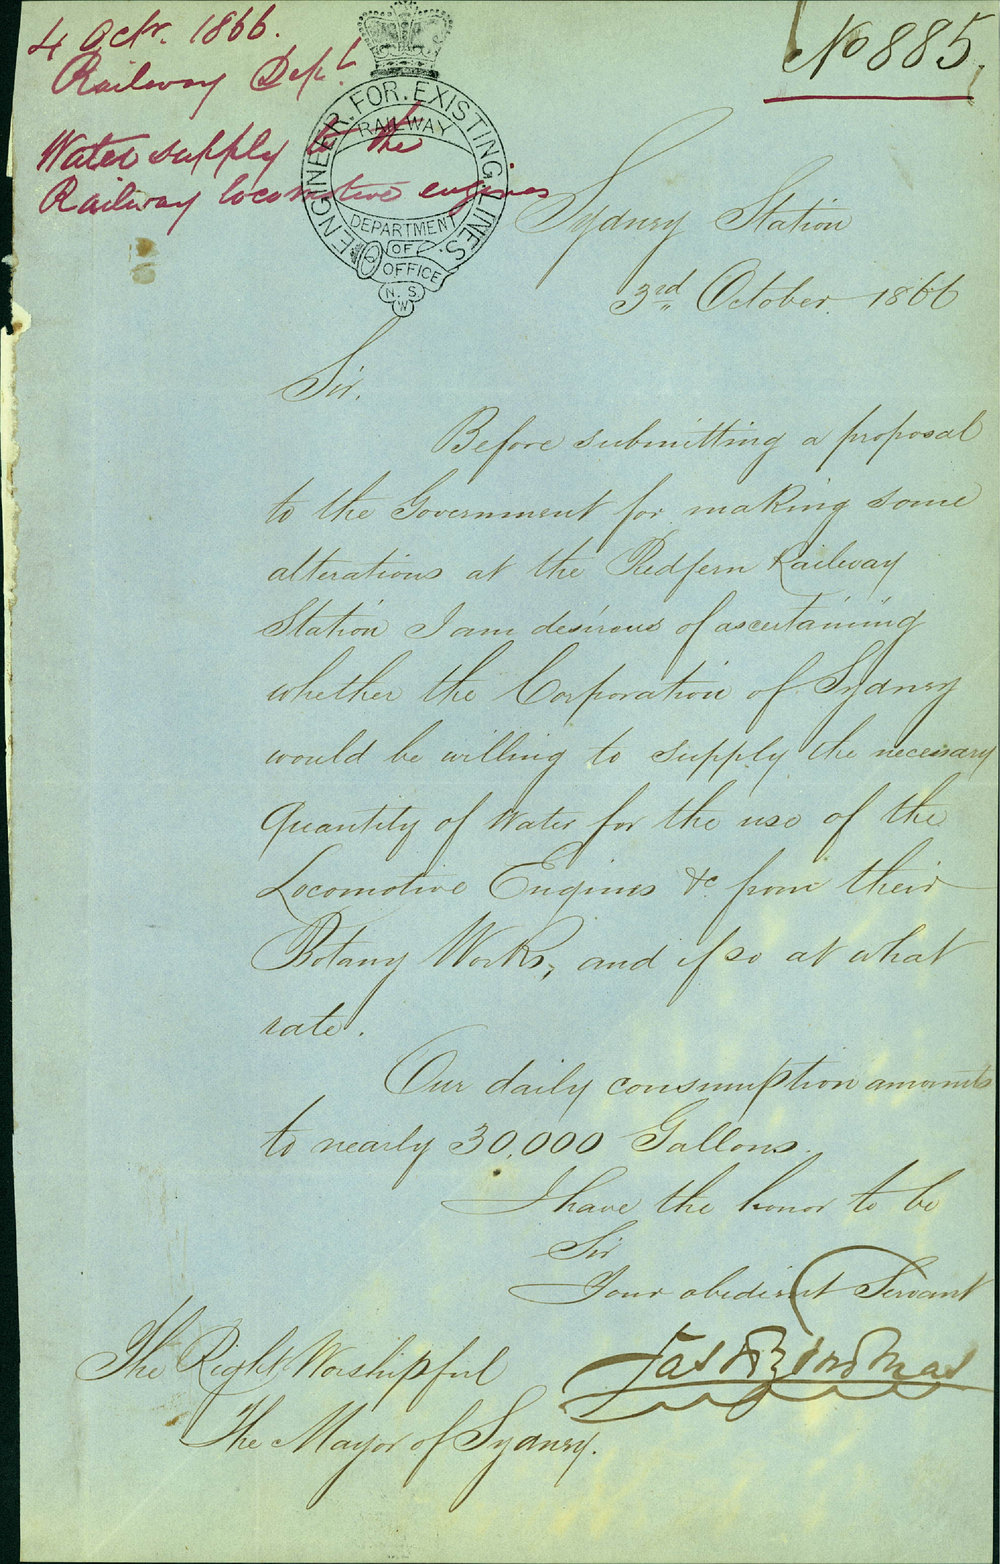 4 Octr. 1866.
Railway Dept.
Water supply to the
Railway locomotive engines
No 885.
ENGINEER. FOR. EXISTING LINES.
RAILWAY
DEPARTMENT
OF
OFFICE
N. S.
W
Sydney Station
3rd October. 1866
Sir.
Before submitting a proposal
to the Government for making some
alterations at the Redfern Railway
Station I am desirous of ascertaining
whether the Corporation of Sydney
would be willing to supply the necessary
Quantity of Water for the use of the
Locomotive Engines &c from their
Botany Works, and if so at what
rate.
Our daily consumption amounts
to nearly 30,000 Gallons.
I have the honor to be
Sir
Your obedient Servant
The Right Worshipful
The Mayor of Sydney.